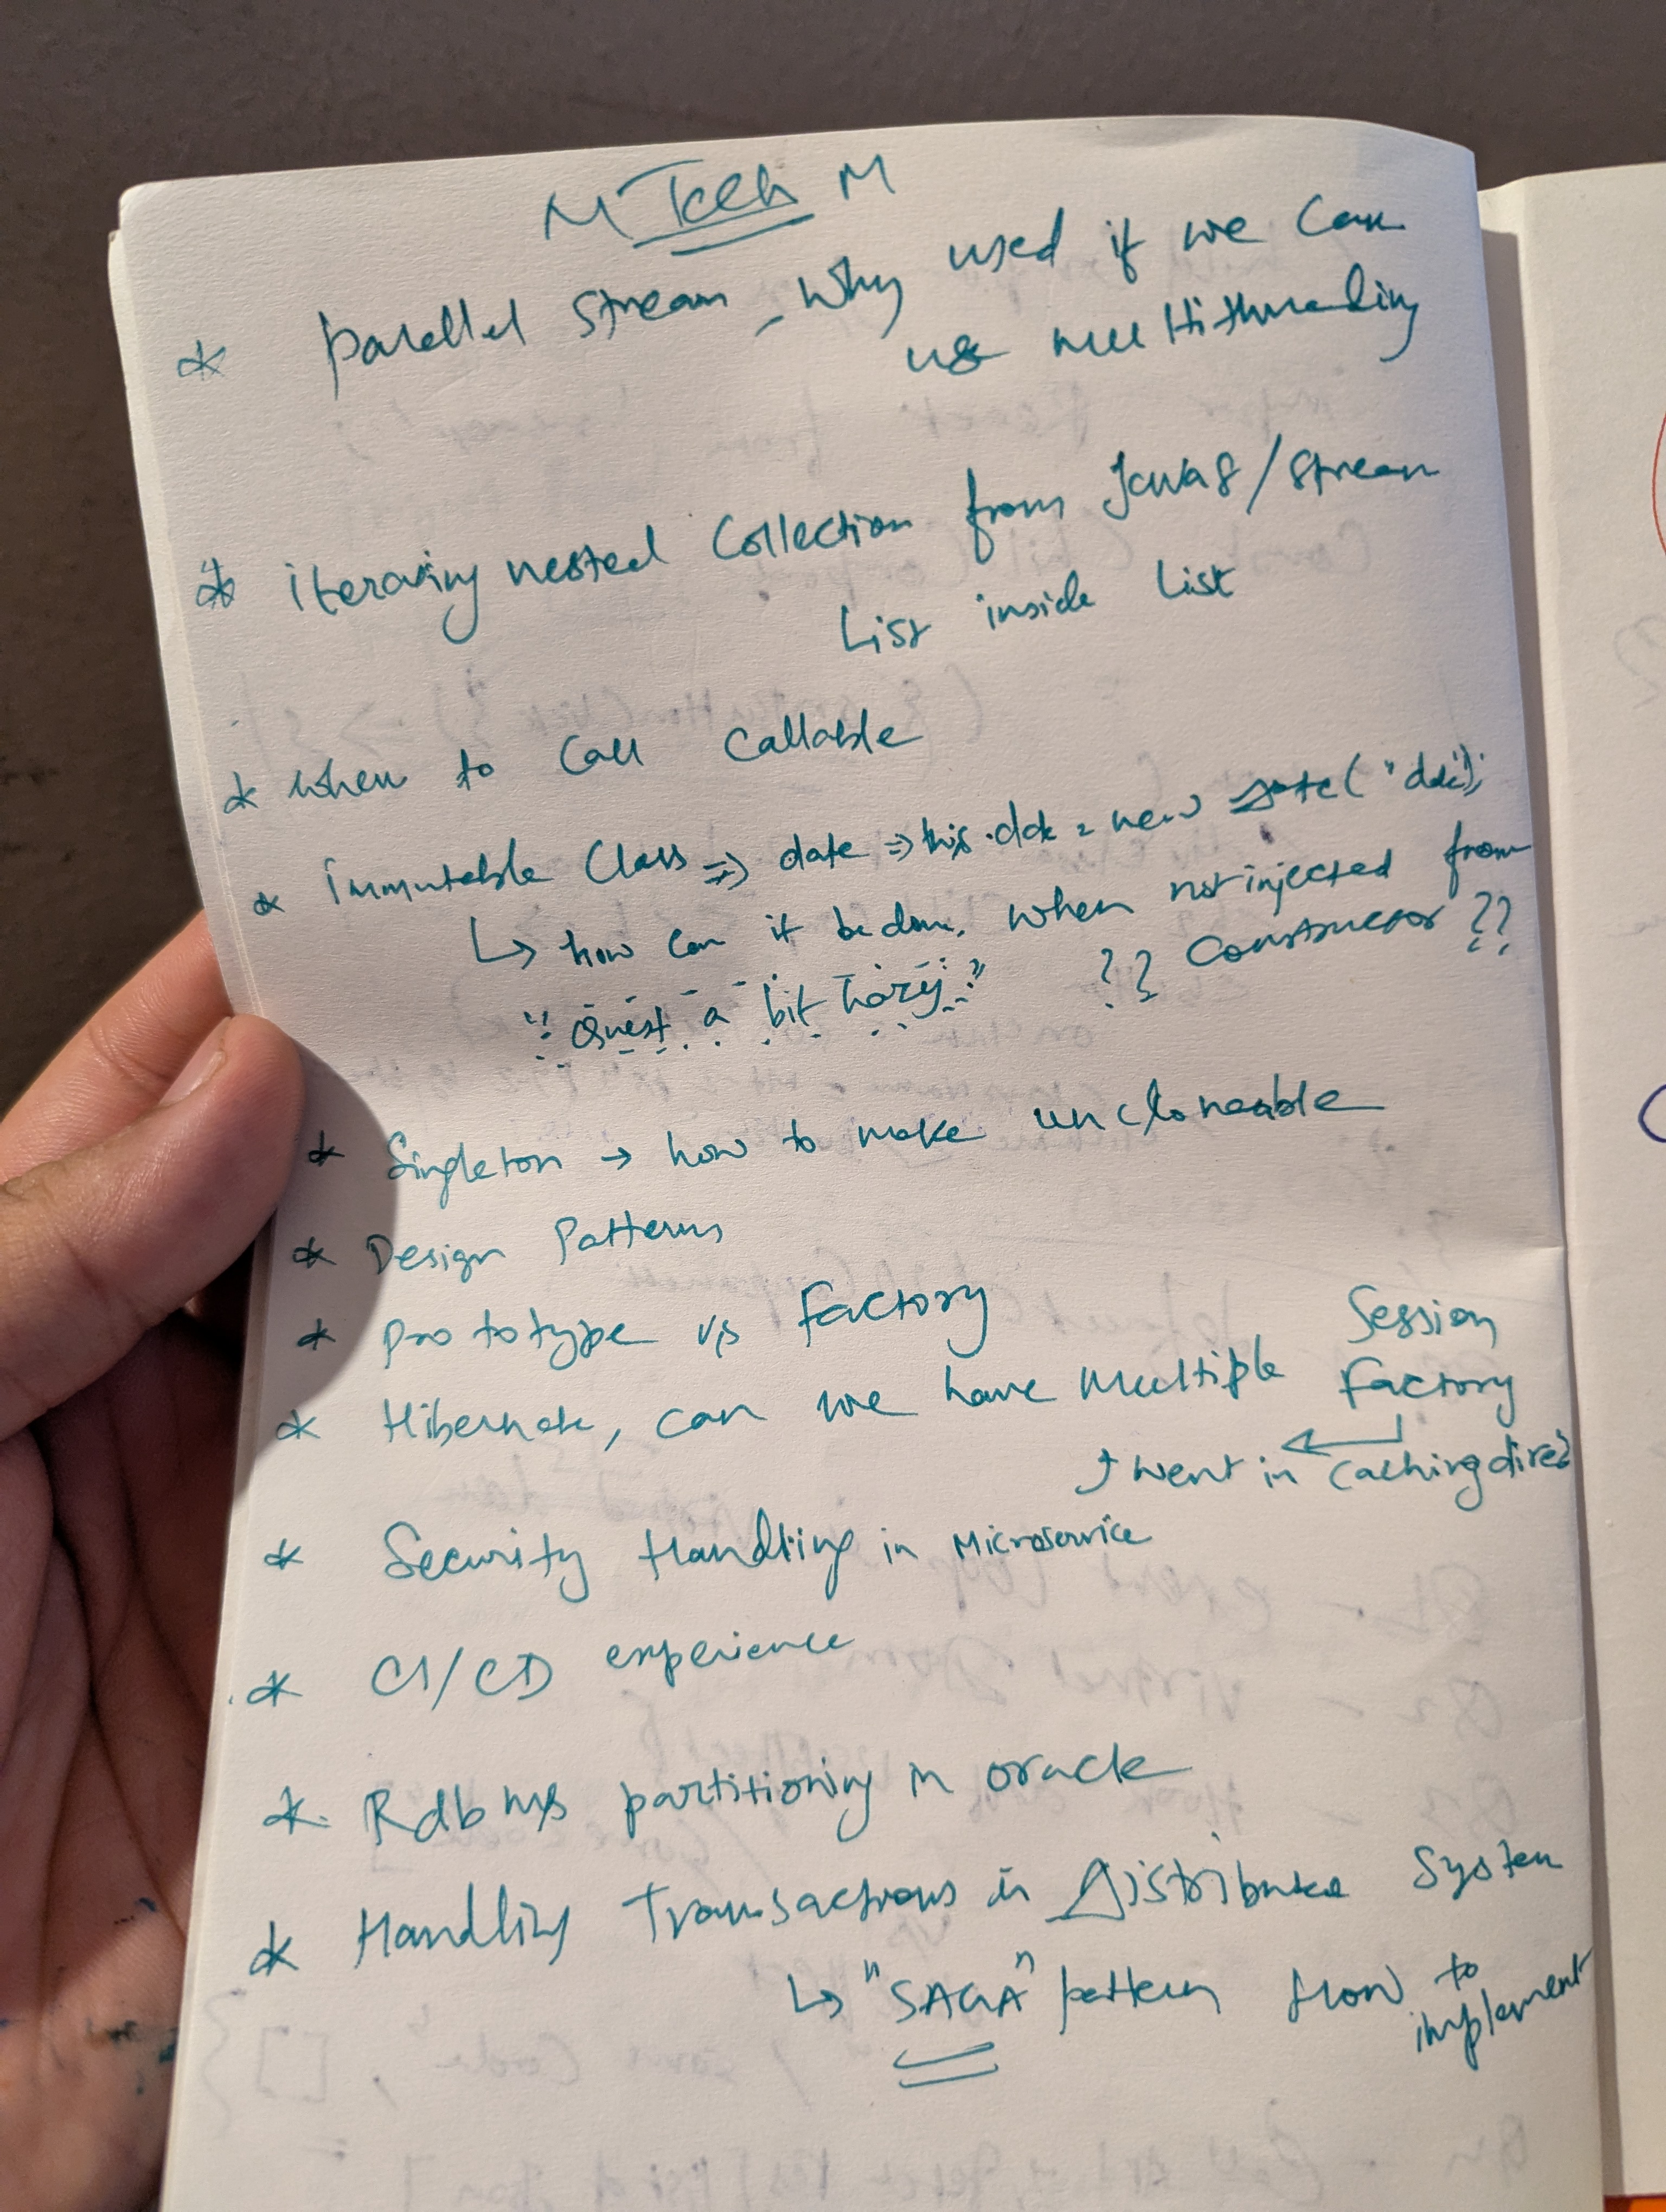 M Tech M
* parallel stream - why used if we can
use multithreading
* iterating nested collection from Java8/stream
List inside List
* when to call callable
* immutable class => date => this.date = new Date("date");
↳ how can it be done, when not injected from
?? constructor ??
"Quest a bit hazy"
* Singleton → how to make uncloneable
* Design Patterns
* Prototype v/s Factory
* Hibernate, can we have multiple Session
Factory
I went in caching direc
* Security Handling in Microservice
* CI/CD experience
* Rdbms partitioning in oracle
* Handling Transactions in Distributed System
↳ "SAGA" pattern How to
implement